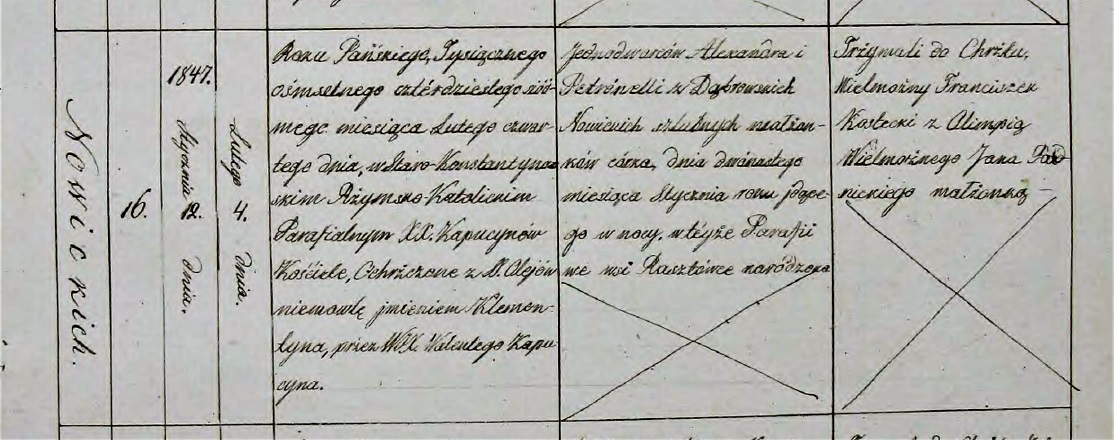 Nowickich.
16.
1847.
Stycznia 12. dnia.
Lutego 4. dnia.
Roku Pańskiego, Tysiącznego
ośmsetnego czterdziestego siód-
mego miesiąca Lutego czwar-
tego dnia, w Staro-Konstantynow
skim Rzymsko-Katolickim
Parafialnym XX. Kapucynów
Kościele, Ochrzczone z S. Olejów
niemowlę jmieniem Klemen-
tyna, przez WX. Walentego Kapu
cyna.
Jednodworców Alexandra i
Petronelli z Dąbrowskich
Nowickich szlubnych małżon-
ków córka, dnia dwónastego
miesiąca Stycznia roku jdące-
go w nocy. w tejże Parafii
we wsi Rasztówce narodzona
Trzymali do Chrztu,
Wielmożny Franciszek
Kostecki z Olimpią
Wielmożnego Jana
nickiego małżonką —